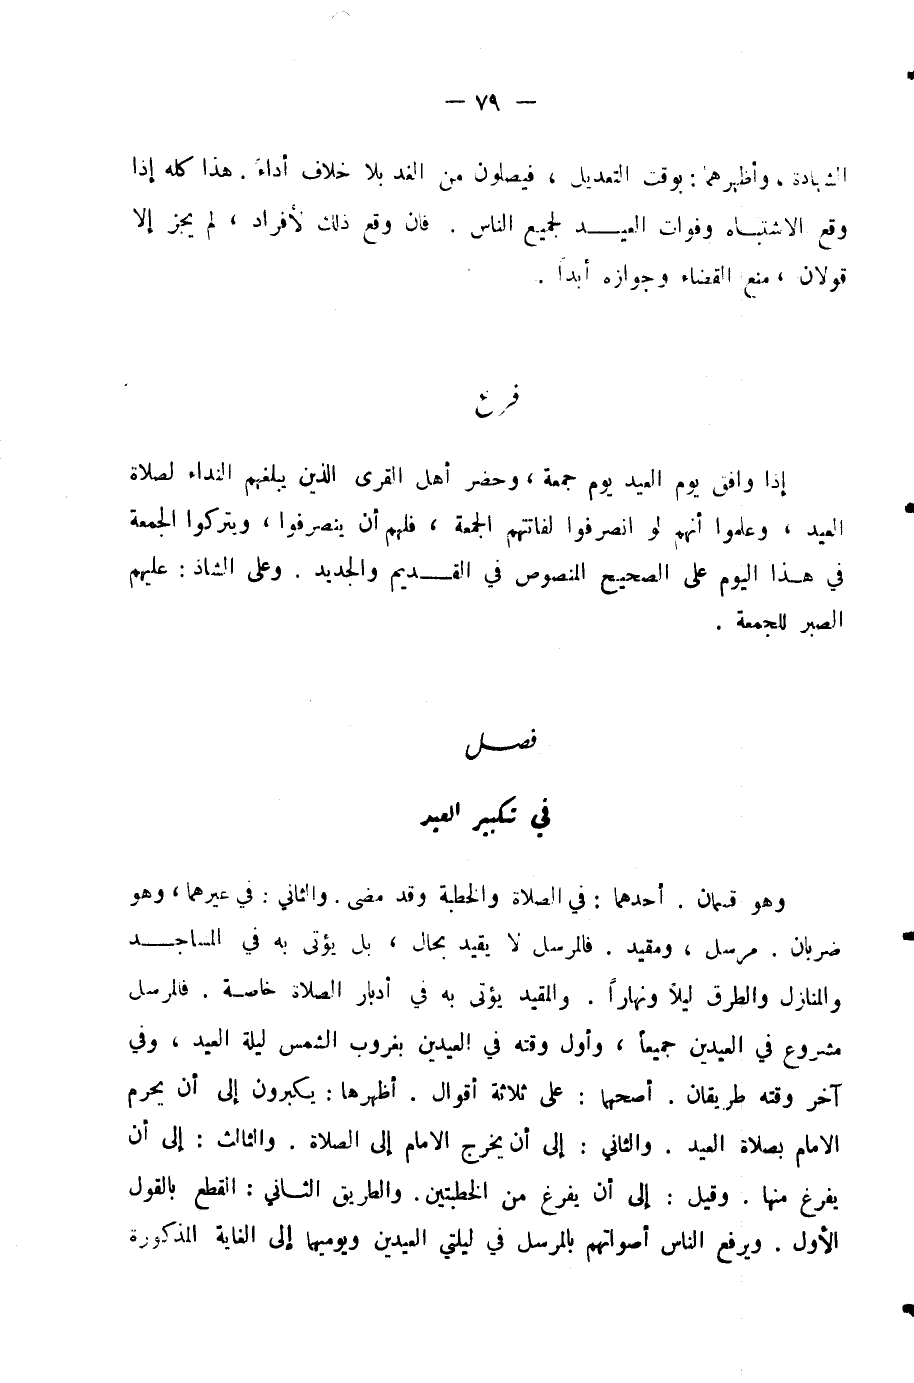 — ٧٩ —
الشهادة . وأظهرهما : بوقت التعديل ، فيصلون من الغد بلا خلاف أداءً . هذا كله إذا
وقع الاشتباه وفوات العيد لجميع الناس . فان وقع ذلك لأفراد ، لم يجز إلا
قولان ، منع القضاء وجوازه أبداً .
فرع
إذا وافق يوم العيد يوم جمعة ، وحضر أهل القرى الذين يبلغهم النداء لصلاة
العيد ، وعلموا أنهم لو انصرفوا لفاتتهم الجمعة ، فلهم أن ينصرفوا ، ويتركوا الجمعة
في هذا اليوم على الصحيح المنصوص في القديم والجديد . وعلى الشاذ : عليهم
الصبر للجمعة .
فصل
في تكبير العيد
وهو قسمان . أحدهما : في الصلاة والخطبة وقد مضى . والثاني : في غيرهما ، وهو
ضربان . مرسل ، ومقيد . فالمرسل لا يقيد بحال ، بل يؤتى به في المساجد
والمنازل والطرق ليلاً ونهاراً . والمقيد يؤتى به في أدبار الصلاة خاصة . فالمرسل
مشروع في العيدين جميعاً ، وأول وقته في العيدين بغروب الشمس ليلة العيد ، وفي
آخر وقته طريقان . أصحها : على ثلاثة أقوال . أظهرها : يكبرون إلى أن يحرم
الامام بصلاة العيد . والثاني : إلى أن يخرج الامام إلى الصلاة . والثالث : إلى أن
يفرغ منها . وقيل : إلى أن يفرغ من الخطبتين . والطريق الثاني : القطع بالقول
الأول . ويرفع الناس أصواتهم بالمرسل في ليلتي العيدين ويوميها إلى الغاية المذكورة